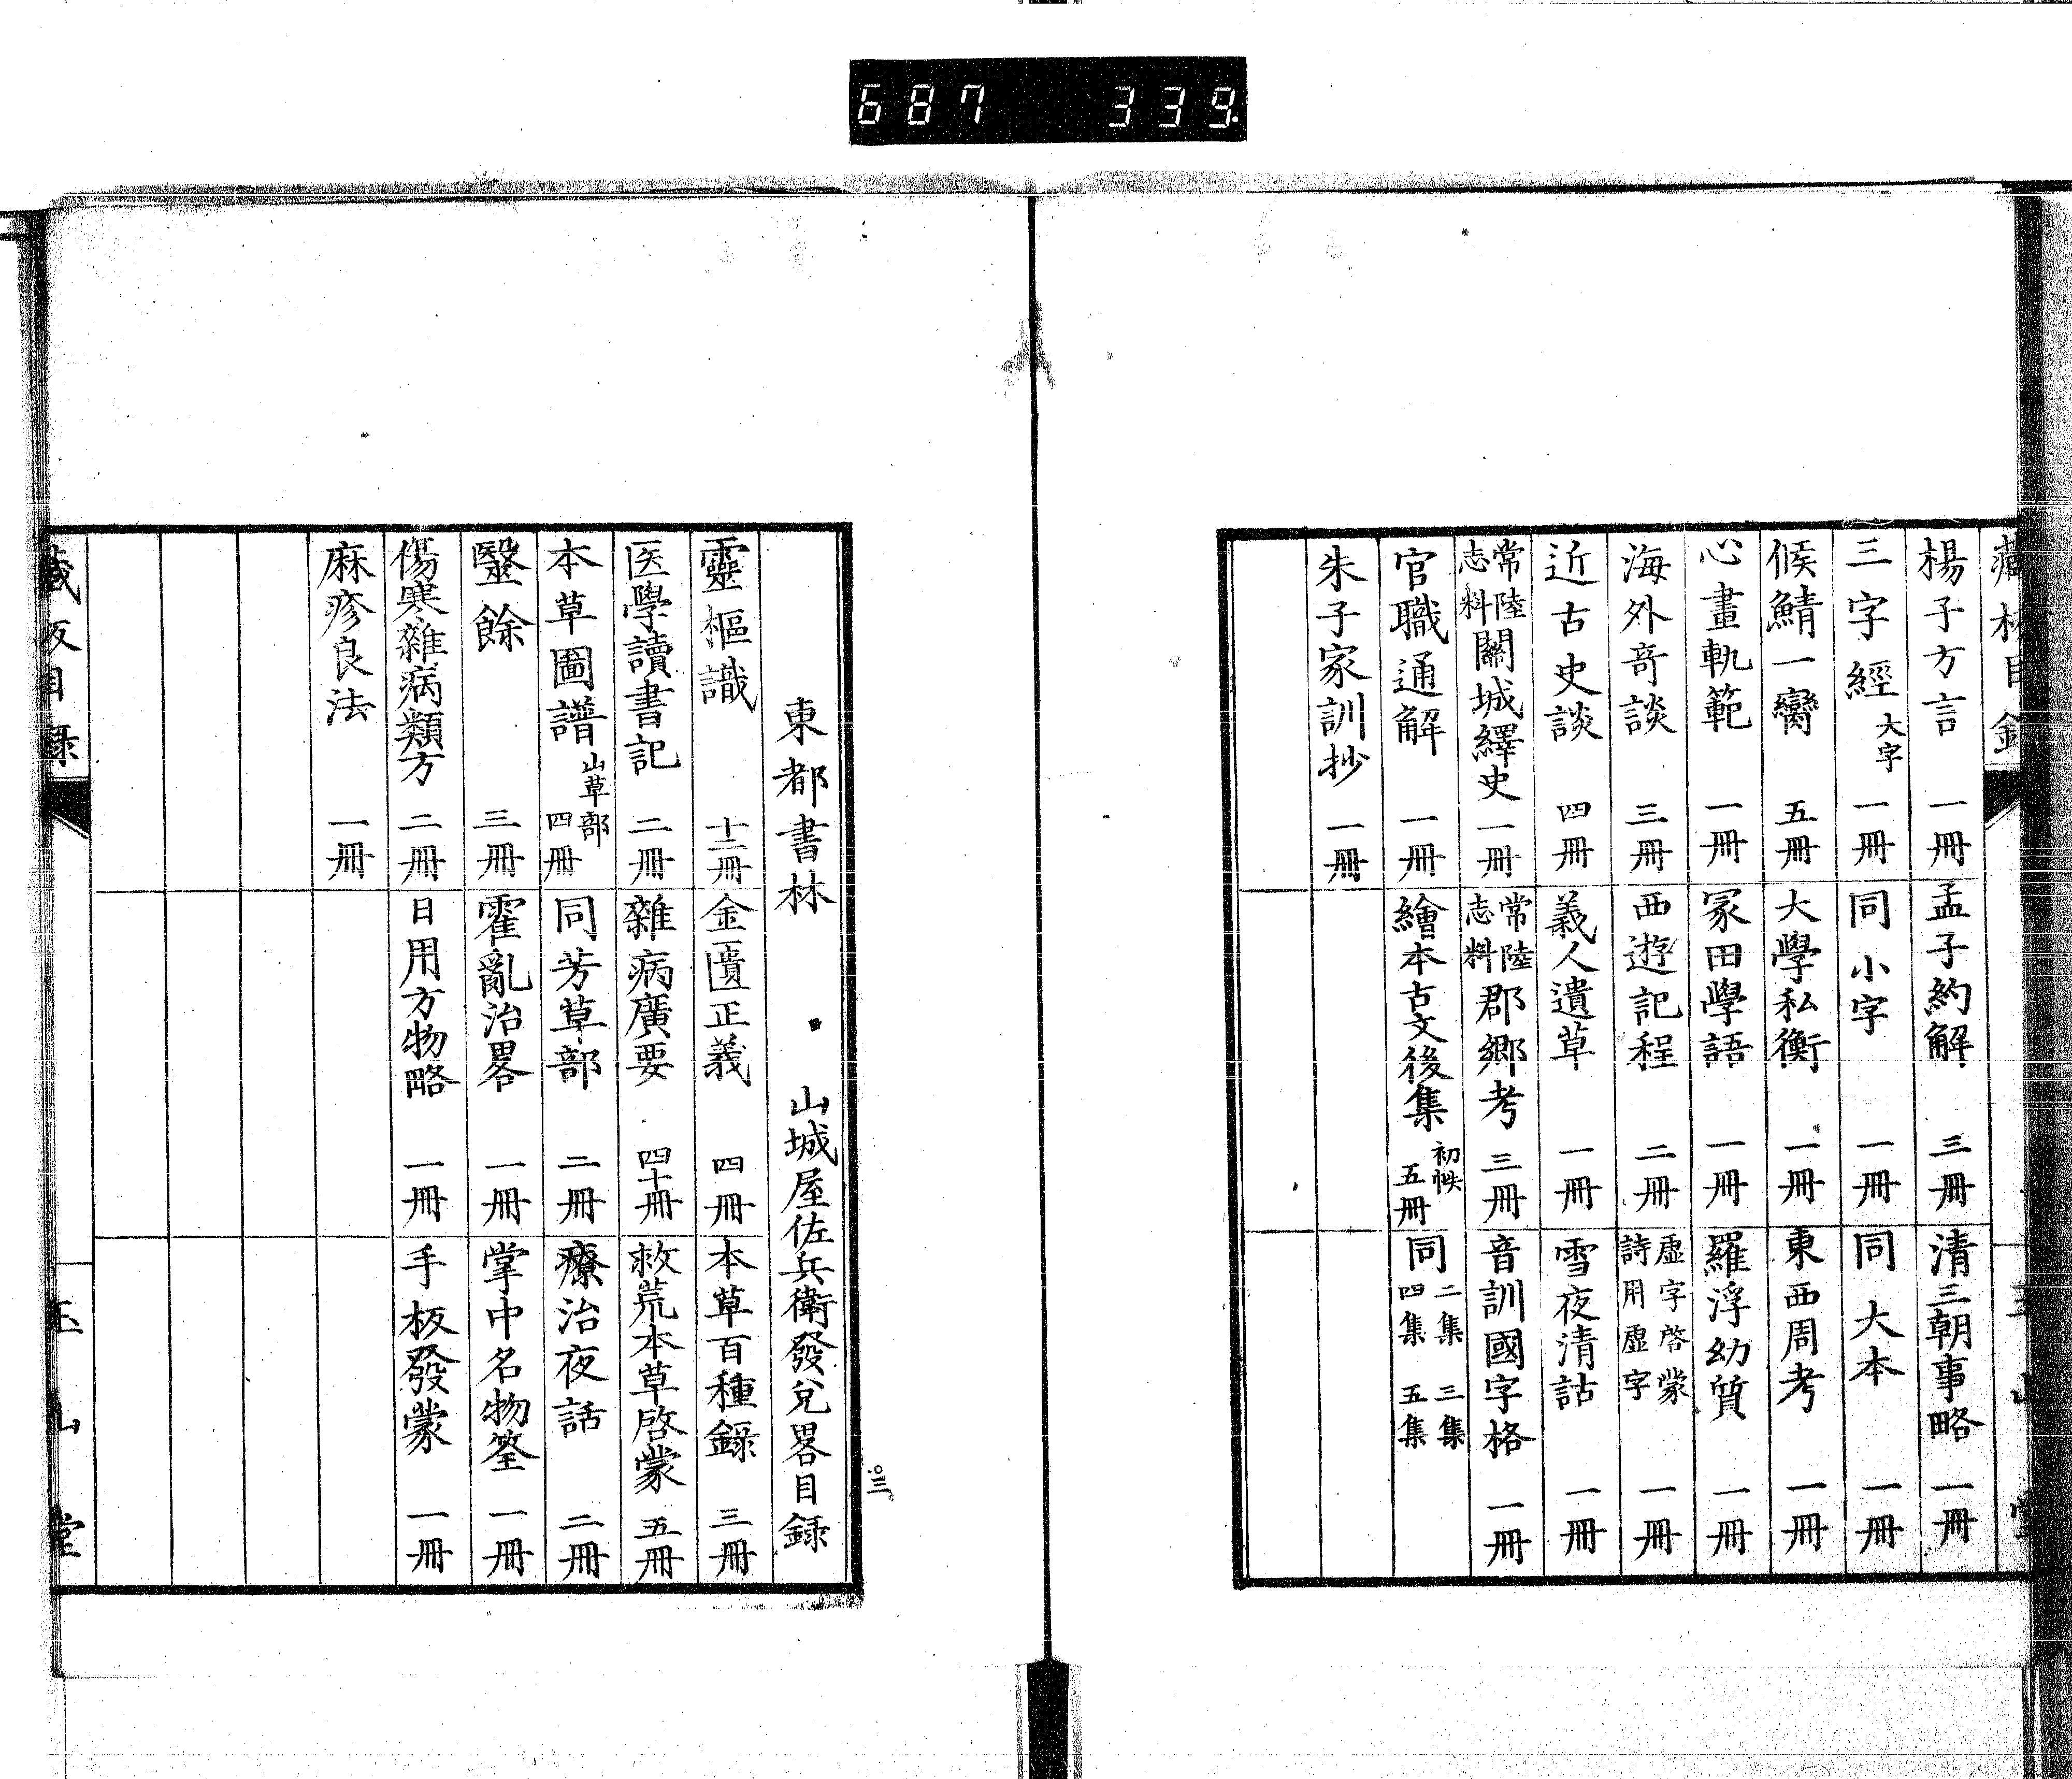 687 339
藏板目録
玉山堂
楊子方言 一冊
孟子約解 三冊
清三朝事略 一冊
三字經 大字 一冊
同小字 一冊
同大本 一冊
候鯖一臠 五冊
大學私衡 一冊
東西周考 一冊
心畫軌範 一冊
冢田學語 一冊
羅浮幼質 一冊
海外奇談 三冊
西遊記程 二冊
虛字啓蒙 詩用虛字 一冊
近古史談 四冊
義人遺草 一冊
雪夜清話 一冊
常陸志料 關城繹史 一冊
常陸志料 郡郷考 三冊
音訓國字格 一冊
官職通解 一冊
繪本古文後集 初帙 五冊
同 二集 三集 四集 五集
朱子家訓抄 一冊
東都書林 山城屋佐兵衛發兌畧目録
靈樞識 十二冊
金匱正義 四冊
本草百種録 三冊
医學讀書記 二冊
雜病廣要 四十冊
救荒本草啓蒙 五冊
本草圖譜 山草部 四冊
同芳草部 二冊
療治夜話 二冊
醫餘 三冊
霍亂治畧 一冊
掌中名物筌 一冊
傷寒雜病類方 二冊
日用方物略 一冊
手板發蒙 一冊
麻疹良法 一冊
藏板目録
玉山堂
三